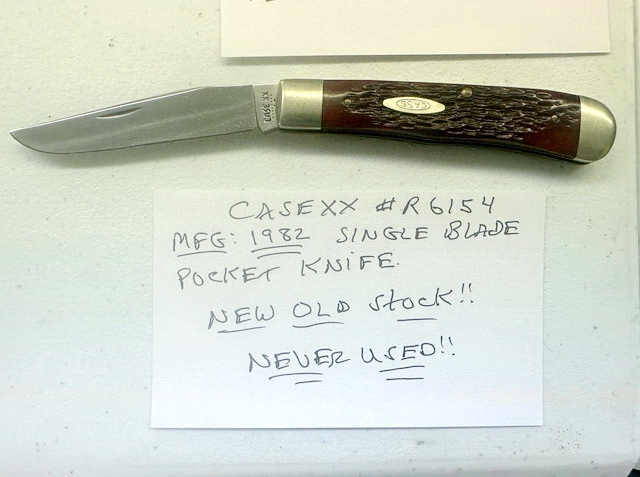 CASE XX
CASE
CASE XX #R6154
MFG: 1982 SINGLE BLADE
POCKET KNIFE.
NEW OLD STOCK!!
NEVER USED!!